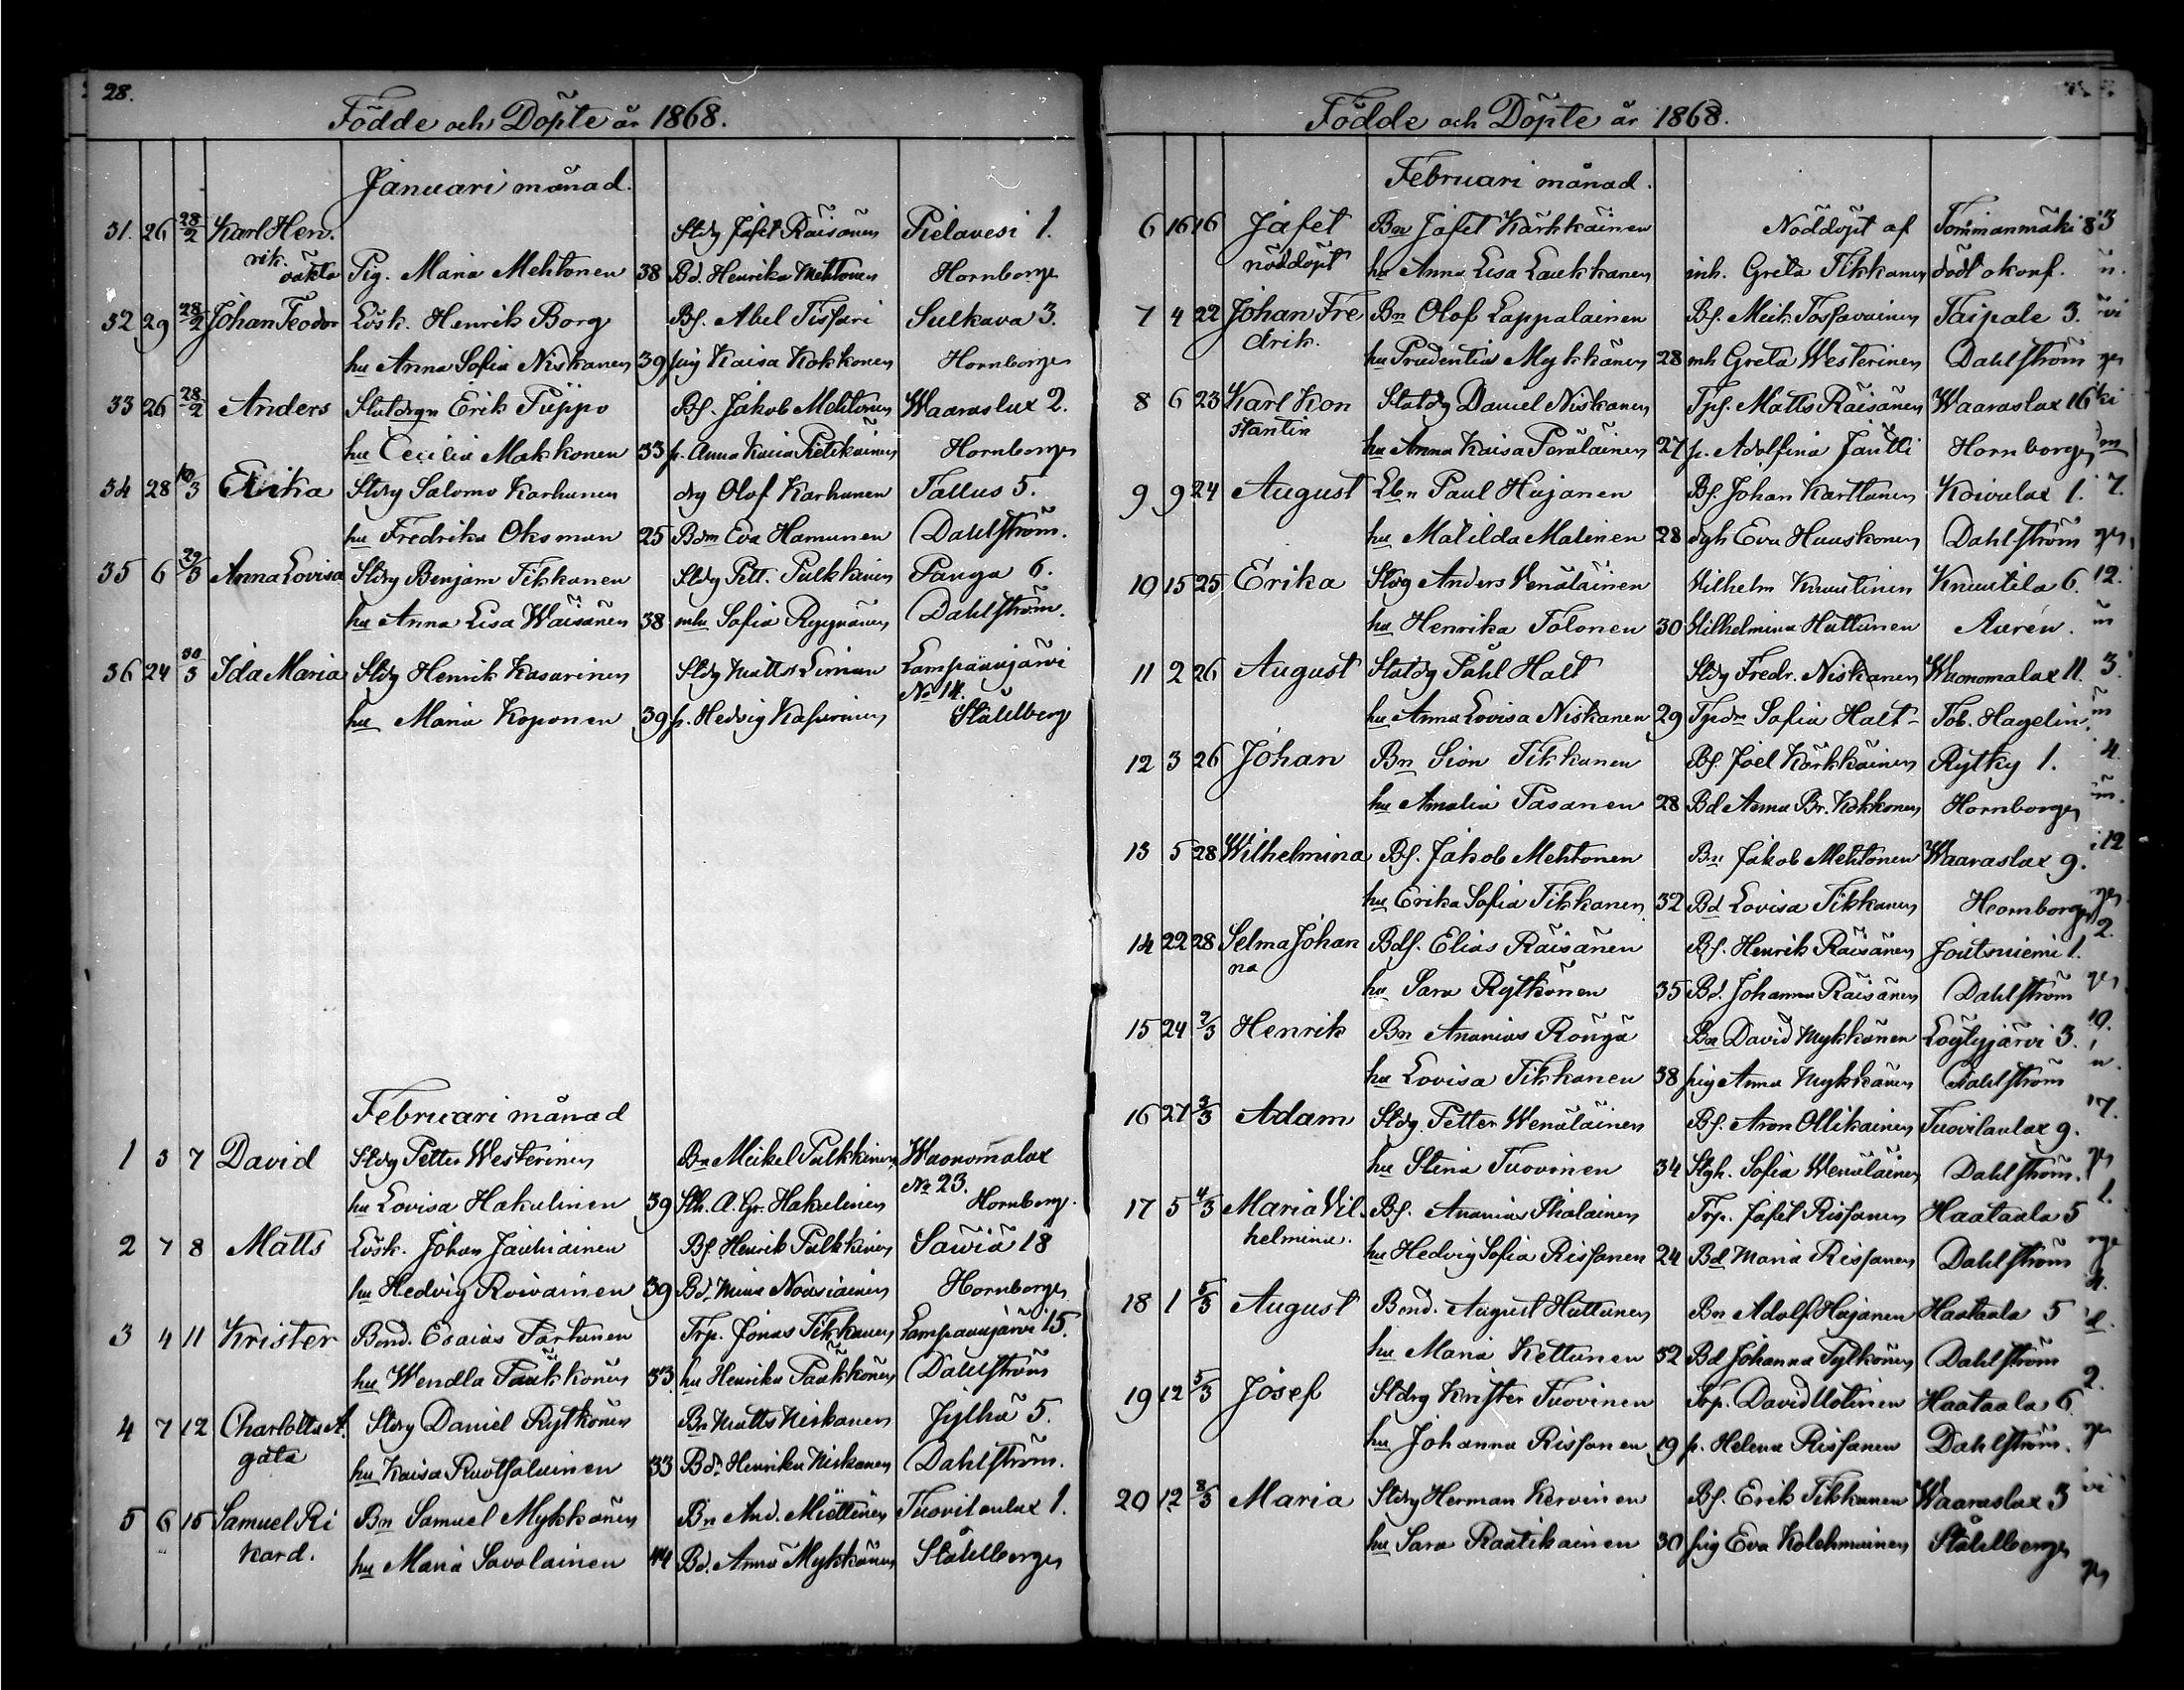 28.
Födde och Döpte år 1868.
Januari månad.
31. 26 28/2 Karl Hen. Stdrg Jafet Räisänen Pielavesi 1.
rik. oäkta Pig. Maria Mehtonen 38 Bd. Henrika Mehtonen Hornborgs
32 29 28/2 Johan Teodor Lösk. Henrik Borg Bf. Abel Tissari Sulkava 3.
hu Anna Sofia Niskanen 39 pig Kaisa Kokkonen Hornborgs
33 26 28/2 Anders Statdrgn Erik Puppo Bf. Jakob Mehtonen Waaraslax 2.
hu Cecilia Makkonen 33 p. Anna Kaisa Pietikäinen Hornborgs
34 28 10/3 Erika Stdrg Salomo Karhunen drg Olof Karhunen Tallus 5.
hu Fredrika Oksman 25 Bdm Eva Hamunen Dahlström.
35 6 29/3 Anna Lovisa Stdrg Benjam Tikkanen Stdrg Pett. Pulkkinen Panga 6.
hu Anna Lisa Wäisänen 38 mhu Sofia Ryynänen Dahlström.
36 24 30/3 Ida Maria Stdrg Henrik Kasarinen Stdrg Matts Liman Lampaanjärvi
No 14.
hu Maria Koponen 39 p. Hedvig Kasurinen Ståhlberg
Februari månad
1 3 7 David Stdrg Petter Westerinen Bn Mickel Pulkkinen Waonomalax
No 23.
hu Lovisa Hakulinen 39 Sth. A. Gr. Hakulinen Hornborg.
2 7 8 Matts Lösk. Johan Jauhiainen Bf. Henrik Pulkkinen Säwiä 18
hu Hedvig Roivainen 39 Bd. Mina Nousiainen Hornborgs
3 4 11 Krister Bond. Esaias Partanen Trp. Jonas Tikkanen Lampaanjärvi 15.
hu Wendla Paukkonen 33 hu Henrika Paukkonen Dahlström
4 7 12 Charlotta A. Stdrg Daniel Rytkönen Bn Matts Niskanen Jylhä 5.
gata hu Kaisa Ruotsalainen 33 Bd. Henrika Niskanen Dahlström.
5 6 15 Samuel Ri Bn Samuel Mykkänen Bn And. Miettinen Tuovilanlax 1.
kard. hu Maria Savolainen 44 Bd. Anna Mykkänen Ståhlbergs
Födde och Döpte år 1868.
Februari månad.
6 16 16 Jafet Bn Jafet Kärkkäinen Nöddöpt af Tommanmäki 8
nöddöpt hu Anna Lisa Laukkanen inh. Greta Tikkanen död okonf.
7 4 22 Johan Fre Bn Olof Lappalainen Bf. Mich. Tossavainen Taipale 3.
drik. hu Prudentia Mykkänen 28 mh Greta Westerinen Dahlström
8 6 23 Karl Kon Statdrg Daniel Niskanen Tpf. Matts Räisänen Waaraslax 16
stantin hu Anna Kaisa Peräläinen 27 p. Adolfina Jäntti Hornborgs
9 9 24 August Lbn Paul Hujanen Bf. Johan Karttunen Koivulax 1.
hu Matilda Malinen 28 dgh Eva Hauskonen Dahlström
10 15 25 Erika Stdrg Anders Wenäläinen Wilhelm Knuutinen Knuutila 6.
hu Henrika Tolonen 30 Wilhelmina Huttunen Aurén.
11 2 26 August Statdrg Påhl Halt Stdrg Fredr. Niskanen Waonomalax 11.
hu Anna Lovisa Niskanen 29 Tpdr Sofia Halt Tob. Hagelin.
12 3 26 Johan Bn Sion Tikkanen Bf. Joel Kärkkäinen Rytky 1.
hu Amalia Pasanen 28 Bd Anna Br. Kokkonen Hornborgs
13 5 28 Wilhelmina Bf. Jakob Mehtonen Bn Jakob Mehtonen Waaraslax 9.
hu Erika Sofia Tikkanen 32 Bd Lovisa Tikkanen Hornborgs
14 22 28 Selma Johan Bdf. Elias Räisänen Bf. Henrik Räisänen Joutsniemi 1.
na hu Sara Rytkönen 35 Bd. Johanna Räisänen Dahlström
15 24 2/3 Henrik Bn Ananias Röngä Bn David Mykkänen Löytyjärvi 3.
hu Lovisa Tikkanen 38 pig Anna Mykkänen Dahlström
16 27 3/3 Adam Stdrg. Petter Wenäläinen Bf. Aron Ollikainen Tuovilanlax 9.
hu Stina Tuovinen 34 Stgh. Sofia Wenäläinen Dahlström.
17 5 4/3 Maria Vil. Bf. Ananias Thalainen Trp. Jafet Rissanen Haataala 5
helmina. hu Hedvig Sofia Rissanen 24 Bd Maria Rissanen Dahlström
18 1 5/3 August Bond. August Huttunen Bn Adolf Hujanen Haataala 5
hu Maria Kettunen 32 Bd Johanna Tylkönen Dahlström
19 12 5/3 Josef Stdrg Krister Tuovinen Trp. David Uotinen Haataala 6
hu Johanna Rissanen 19 p. Helena Rissanen Dahlström.
20 12 8/3 Maria Stdrg Herman Kervinen Bf. Erik Tikkanen Waaraslax 3
hu Sara Raatikainen 30 pig Eva Kolehmainen Ståhlbergs